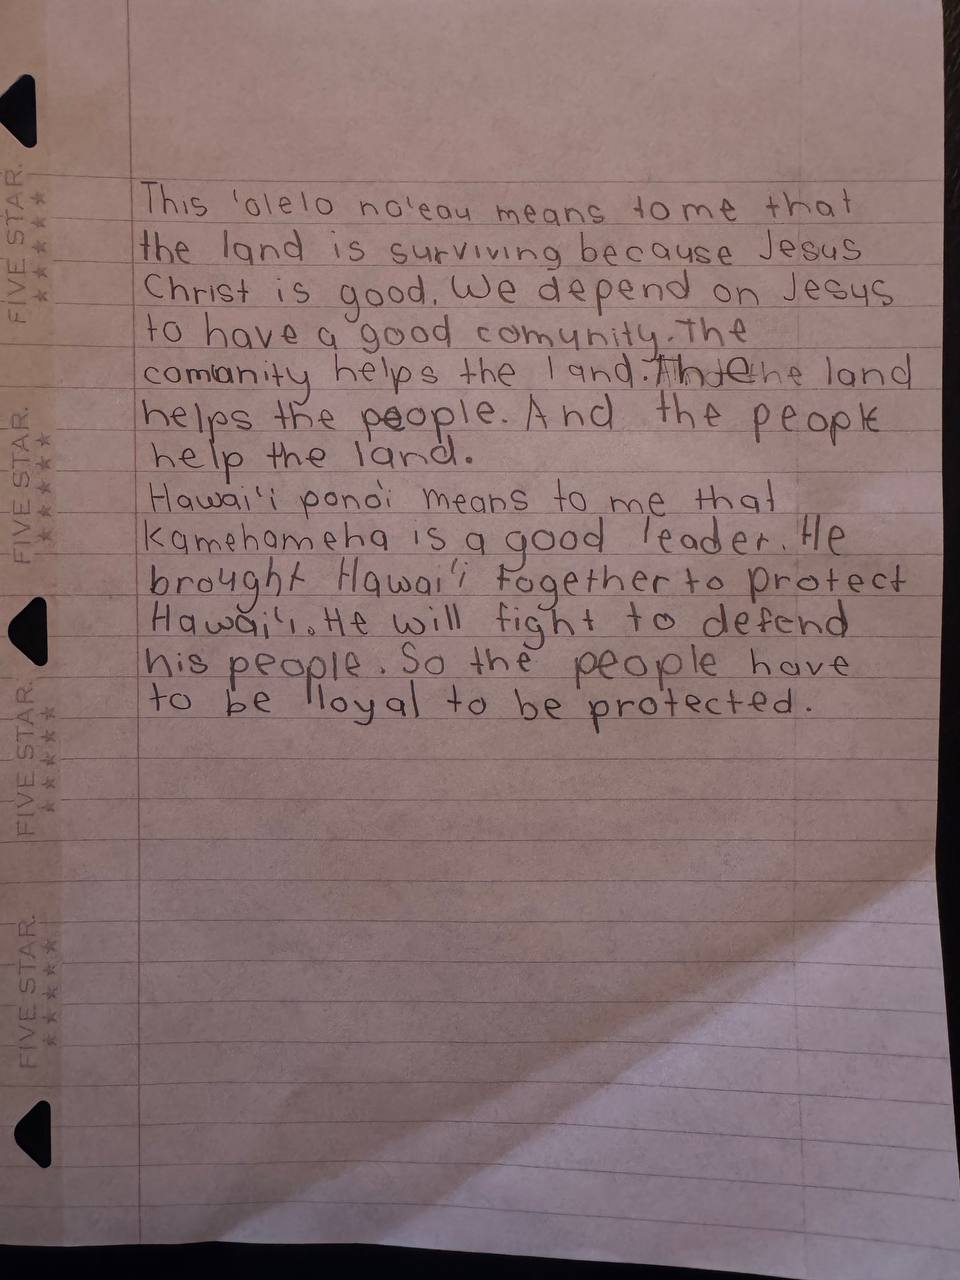 This 'olelo no'eau means to me that
the land is surviving because Jesus
Christ is good. We depend on Jesus
to have a good comunity. The
comunity helps the land. the land
helps the people. And the people
help the land.
Hawai'i pono'i means to me that
Kamehameha is a good leader. He
brought Hawai'i together to protect
Hawai'i. He will fight to defend
his people. So the people have
to be loyal to be protected.
FIVE STAR.
FIVE STAR.
FIVE STAR.
FIVE STAR.